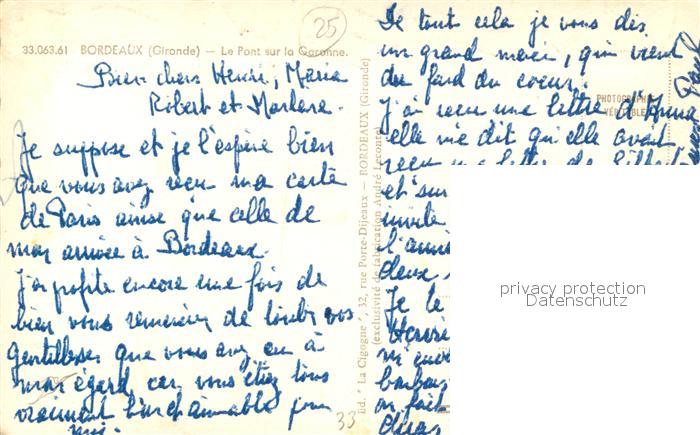 25
33.063.61 BORDEAUX (Gironde) — Le Pont sur la Garonne.
Bien chers Henri, Maria
Robert et Marlene.
Je suppose et je l'espère bien
que vous avez reçu ma carte
de Paris ainsi que celle de
mon arrivée à Bordeaux.
J'ai profite encore une fois de
bien vous remercier de toutes vos
gentillesses que vous avez eu à
mon égard, car vous étiez tous
vraiment aimable pour
moi.
33
Ed. "La Cigogne", 32, rue Porte-Dijeaux — BORDEAUX (Gironde)
(exclusivité de fabrication André Leconte)
De tout cela je vous dis
un grand merci, qui vient
du fond du coeur.
PHOTOGRAPHIE
VÉRITABLE
J'ai reçu une lettre d'Anna
elle me dit qu'elle avait
reçu une lettre de
et sur
invite
l'anni
deux
Je te
Henri
on fait
privacy protection
Datenschutz